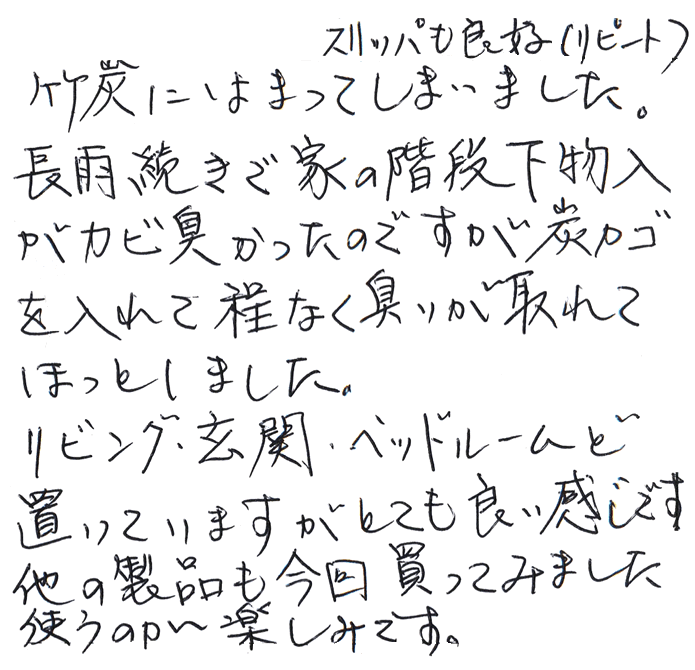 スリッパも良好(リピート)
竹炭にはまってしまいました。
長雨続きで家の階段下物入
がカビ臭かったのですが炭カゴ
を入れて程なく臭いが取れて
ほっとしました。
リビング・玄関・ベッドルームと
置いていますがとても良い感じです
他の製品も今回買ってみました
使うのが楽しみです。